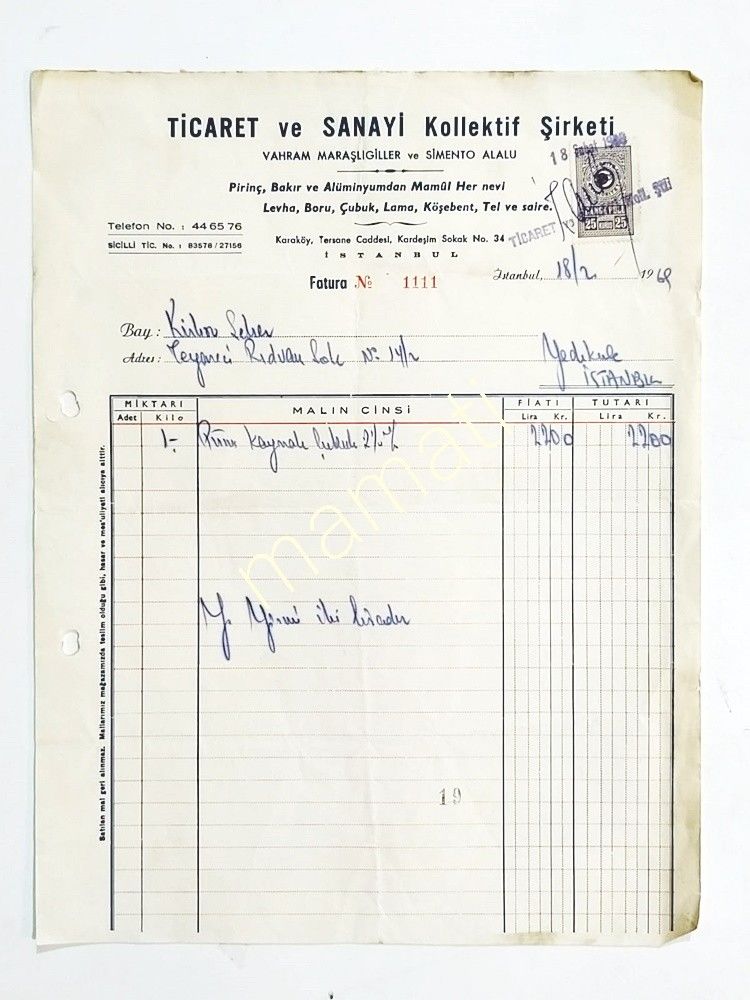 TİCARET ve SANAYİ Kollektif Şirketi
VAHRAM MARAŞLIGİLLER ve SİMENTO ALALU
Pirinç, Bakır ve Alüminyumdan Mamûl Her nevi
Levha, Boru, Çubuk, Lama, Köşebent, Tel ve saire.
Telefon No. : 44 65 76
SİCİLLİ TİC. No. : 83578 / 27156
Karaköy, Tersane Caddesi, Kardeşim Sokak No. 34
İSTANBUL
18 Şubat
TİCARET Koll. Şti
25 KURUŞ 25
Fatura № 1111
İstanbul, 18/2 1969
Bay :
Adres : Rıdvan Sok No 14/2 Yedikule
İSTANBUL
MİKTARI MALIN CİNSİ FİATI TUTARI
Adet Kilo Lira Kr. Lira Kr.
1- Kaynak 2200 2200
Y. Yirmi iki liradır
19
Satılan mal geri alınmaz. Mallarımız mağazamızda teslim olduğu gibi, hasar ve mes'uliyeti alıcıya aittir.
mamati